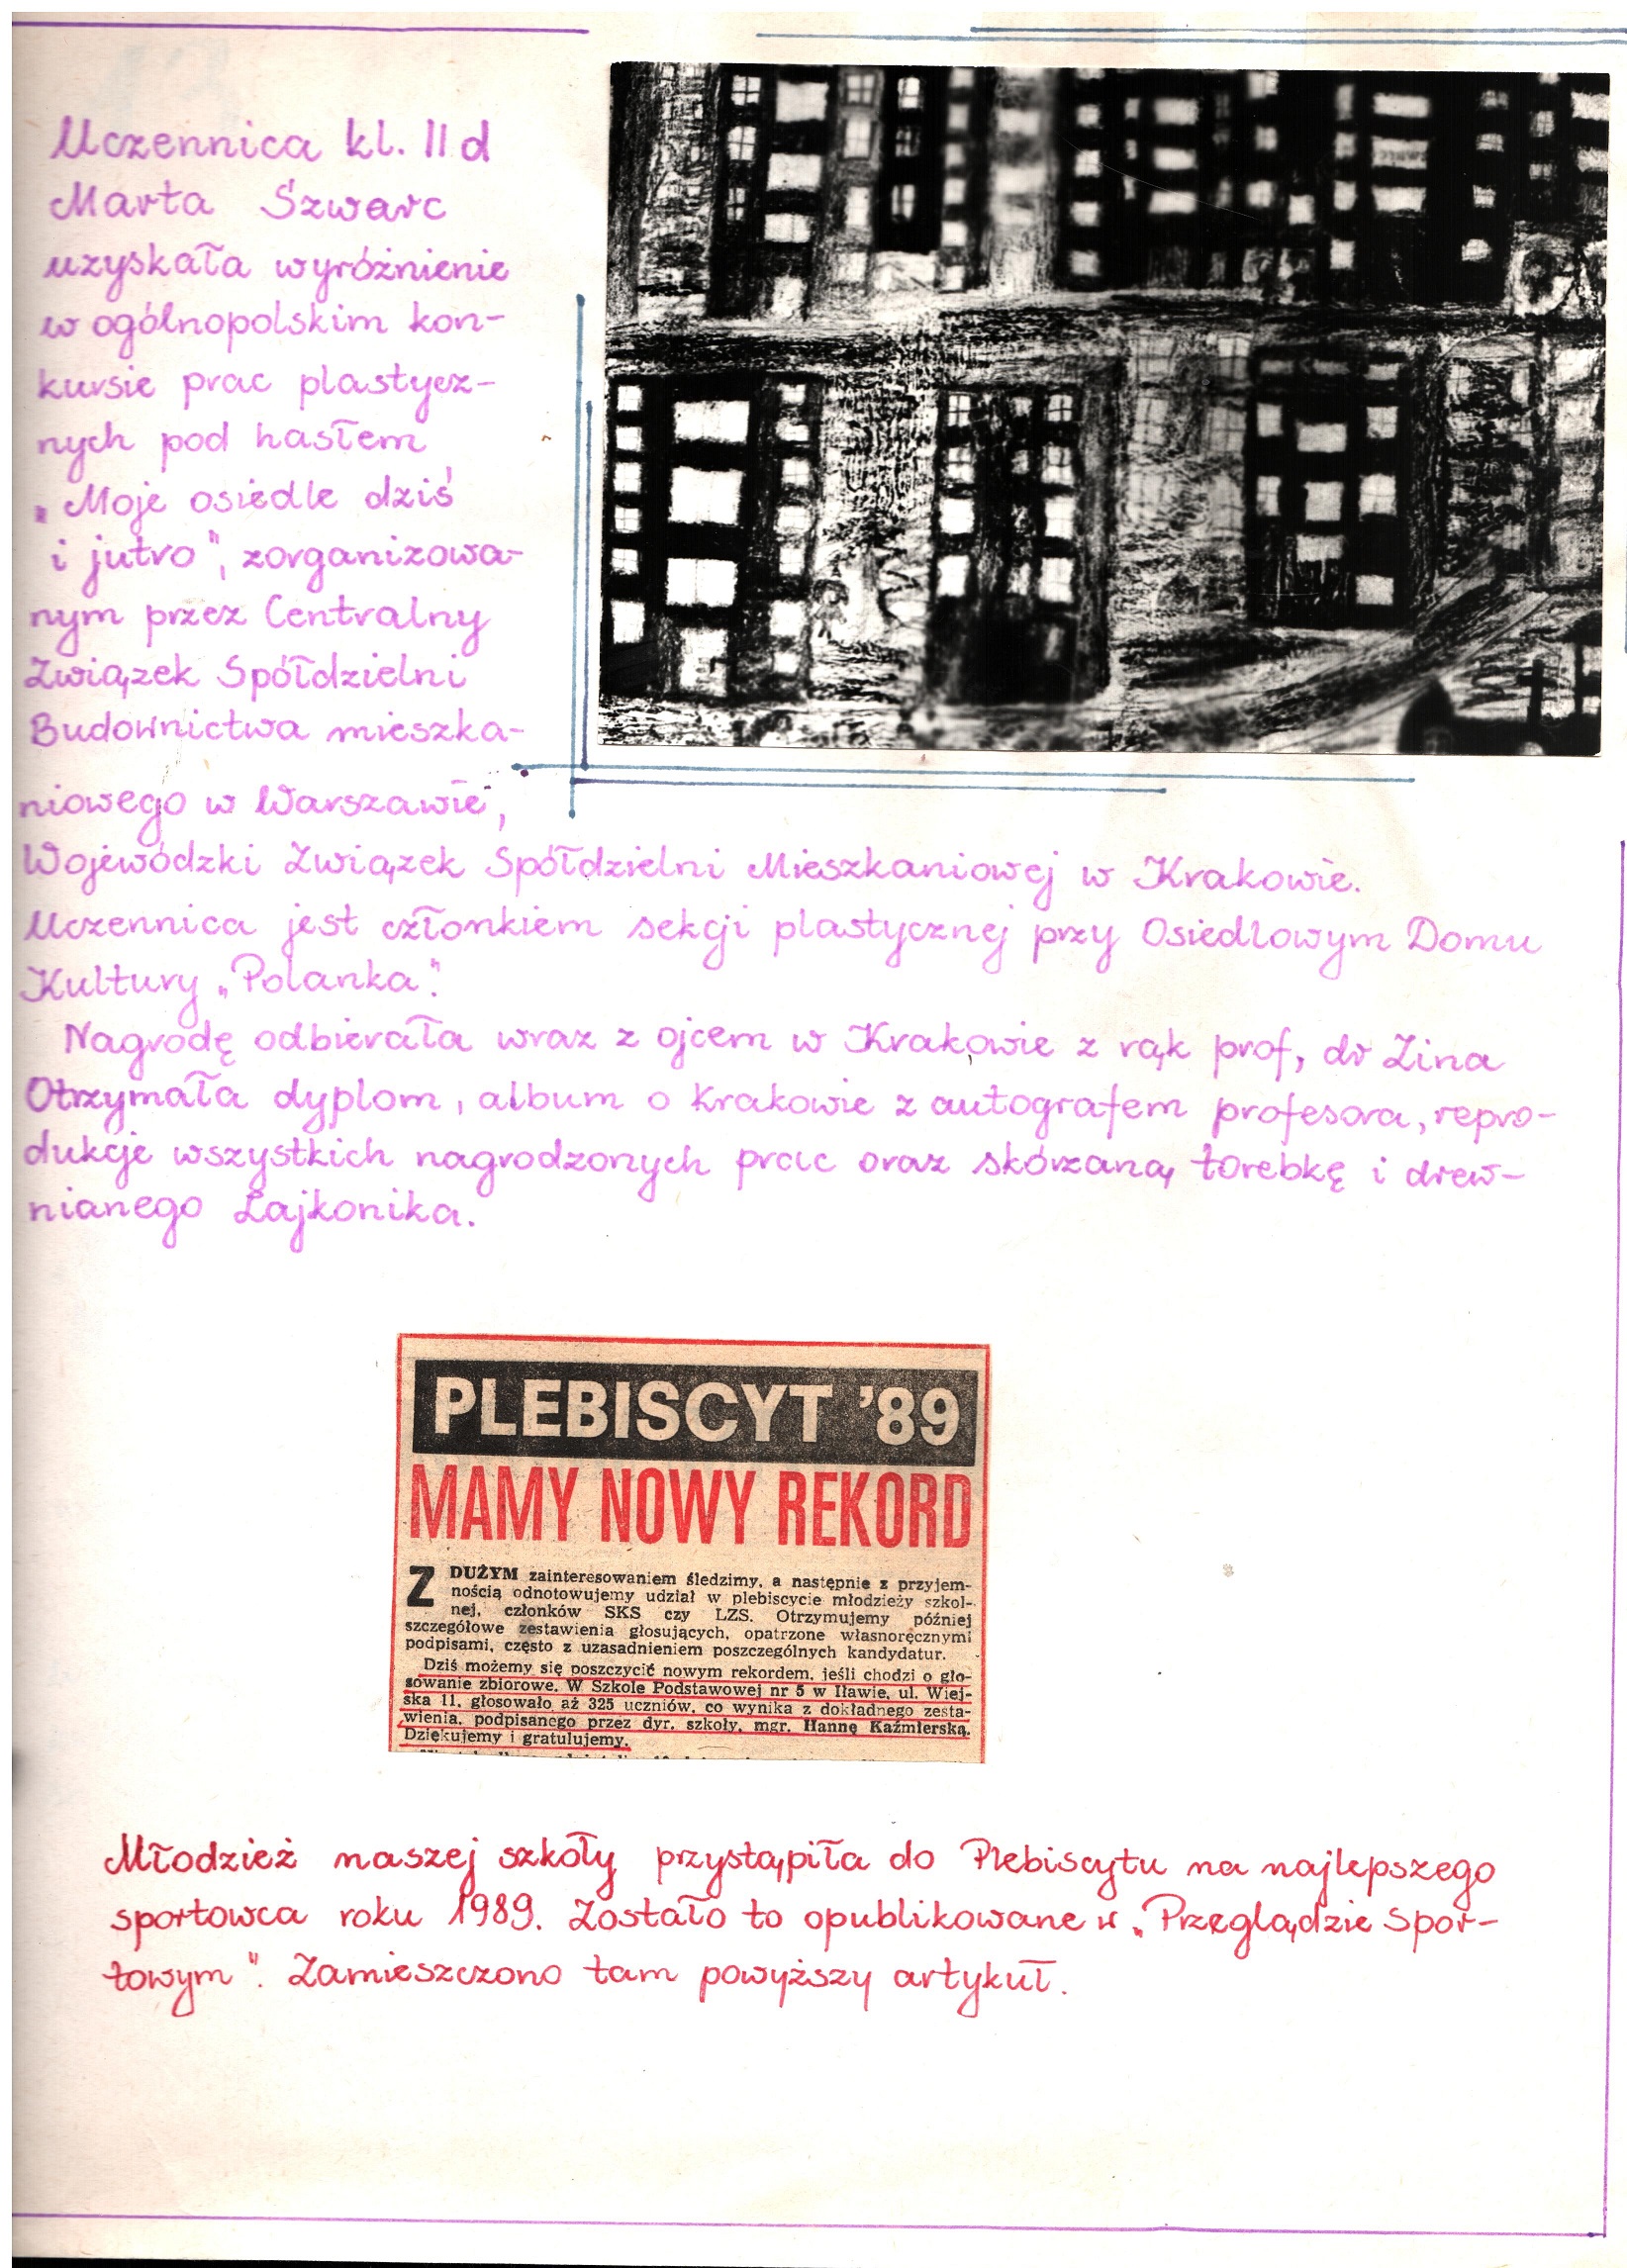 Uczennica kl. II d
Marta Szwarc
uzyskała wyróżnienie
w ogólnopolskim kon-
kursie prac plastycz-
nych pod hasłem
„Moje osiedle dziś
i jutro", zorganizowa-
nym przez Centralny
Związek Spółdzielni
Budownictwa mieszka-
niowego w Warszawie,
Wojewódzki Związek Spółdzielni Mieszkaniowej w Krakowie.
Uczennica jest członkiem sekcji plastycznej przy Osiedlowym Domu
Kultury „Polanka".
Nagrodę odbierała wraz z ojcem w Krakowie z rąk prof, dr Zina
Otrzymała dyplom, album o Krakowie z autografem profesora, repro-
dukcje wszystkich nagrodzonych prac oraz skórzaną torebkę i drew-
nianego Lajkonika.
PLEBISCYT '89
MAMY NOWY REKORD
Z DUŻYM zainteresowaniem śledzimy, a następnie z przyjem-
nością odnotowujemy udział w plebiscycie młodzieży szkol-
nej, członków SKS czy LZS. Otrzymujemy później
szczegółowe zestawienia głosujących, opatrzone własnoręcznymi
podpisami, często z uzasadnieniem poszczególnych kandydatur.
Dziś możemy się poszczycić nowym rekordem, jeśli chodzi o gło-
sowanie zbiorowe. W Szkole Podstawowej nr 5 w Iławie, ul. Wiej-
ska 11, głosowało aż 325 uczniów, co wynika z dokładnego zesta-
wienia, podpisanego przez dyr. szkoły, mgr. Hannę Kaźmierską.
Dziękujemy i gratulujemy.
Młodzież naszej szkoły przystąpiła do Plebiscytu na najlepszego
sportowca roku 1989. Zostało to opublikowane w „Przeglądzie Spor-
towym". Zamieszczono tam powyższy artykuł.